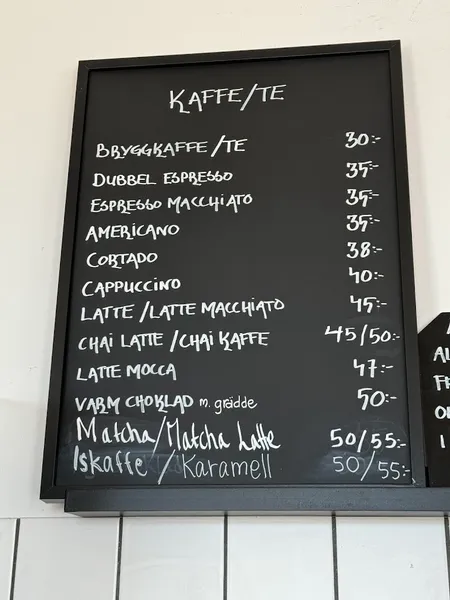 KAFFE/TE
BRYGGKAFFE/TE 30:-
DUBBEL ESPRESSO 35:-
ESPRESSO MACCHIATO 35:-
AMERICANO 35:-
CORTADO 38:-
CAPPUCCINO 40:-
LATTE/LATTE MACCHIATO 45:-
CHAI LATTE/CHAI KAFFE 45/50:-
LATTE MOCCA 47:-
VARM CHOKLAD m. grädde 50:-
Matcha/Matcha Latte 50/55:-
Iskaffe/Karamell 50/55:-